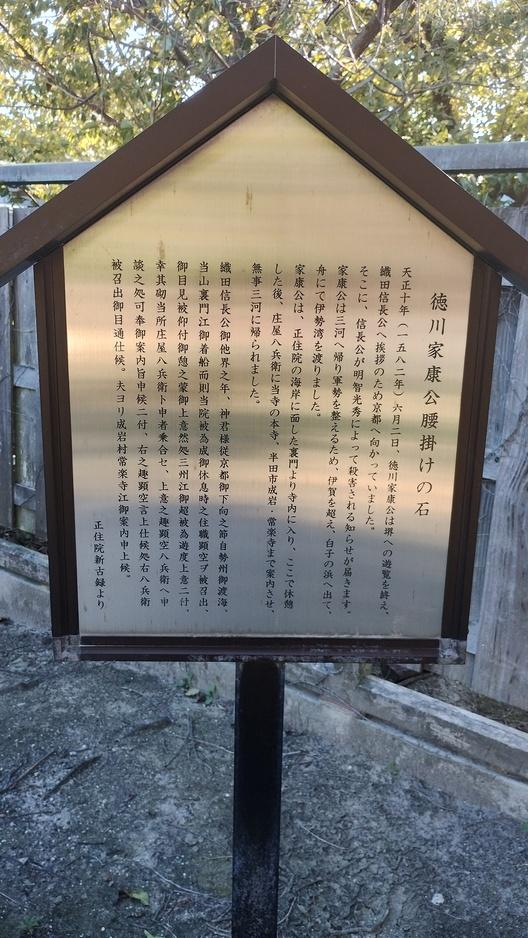 徳川家康公腰掛けの石
天正十年（一五八二年）六月二日、徳川家康公は堺への遊覧を終え、
織田信長公へ挨拶のため京都へ向かっていました。
そこに、信長公が明智光秀によって殺害される知らせが届きます。
家康公は三河へ帰り軍勢を整えるため、伊賀を超え、白子の浜へ出て、
舟にて伊勢湾を渡りました。
家康公は、正住院の海岸に面した裏門より寺内に入り、ここで休憩
した後、庄屋八兵衛に当寺の本寺、半田市成岩・常楽寺まで案内させ、
無事三河に帰られました。
織田信長公御他界之年、神君様従京都御下向之節自勢州御渡海、
当山裏門江御着船而則当院被為成御休息時之住職顕空ヲ被召出、
御目見被仰付御憩之蒙御上意然処三州江御超被為遊度上意二付、
幸其砌当所庄屋八兵衛卜申者乗合セ、上意之趣顕空八兵衛へ申
談之処可奉御案内旨申候二付、右之趣顕空言上仕候処右八兵衛
被召出御目通仕候。夫ヨリ成岩村常楽寺江御案内申上候。
正住院新古録より